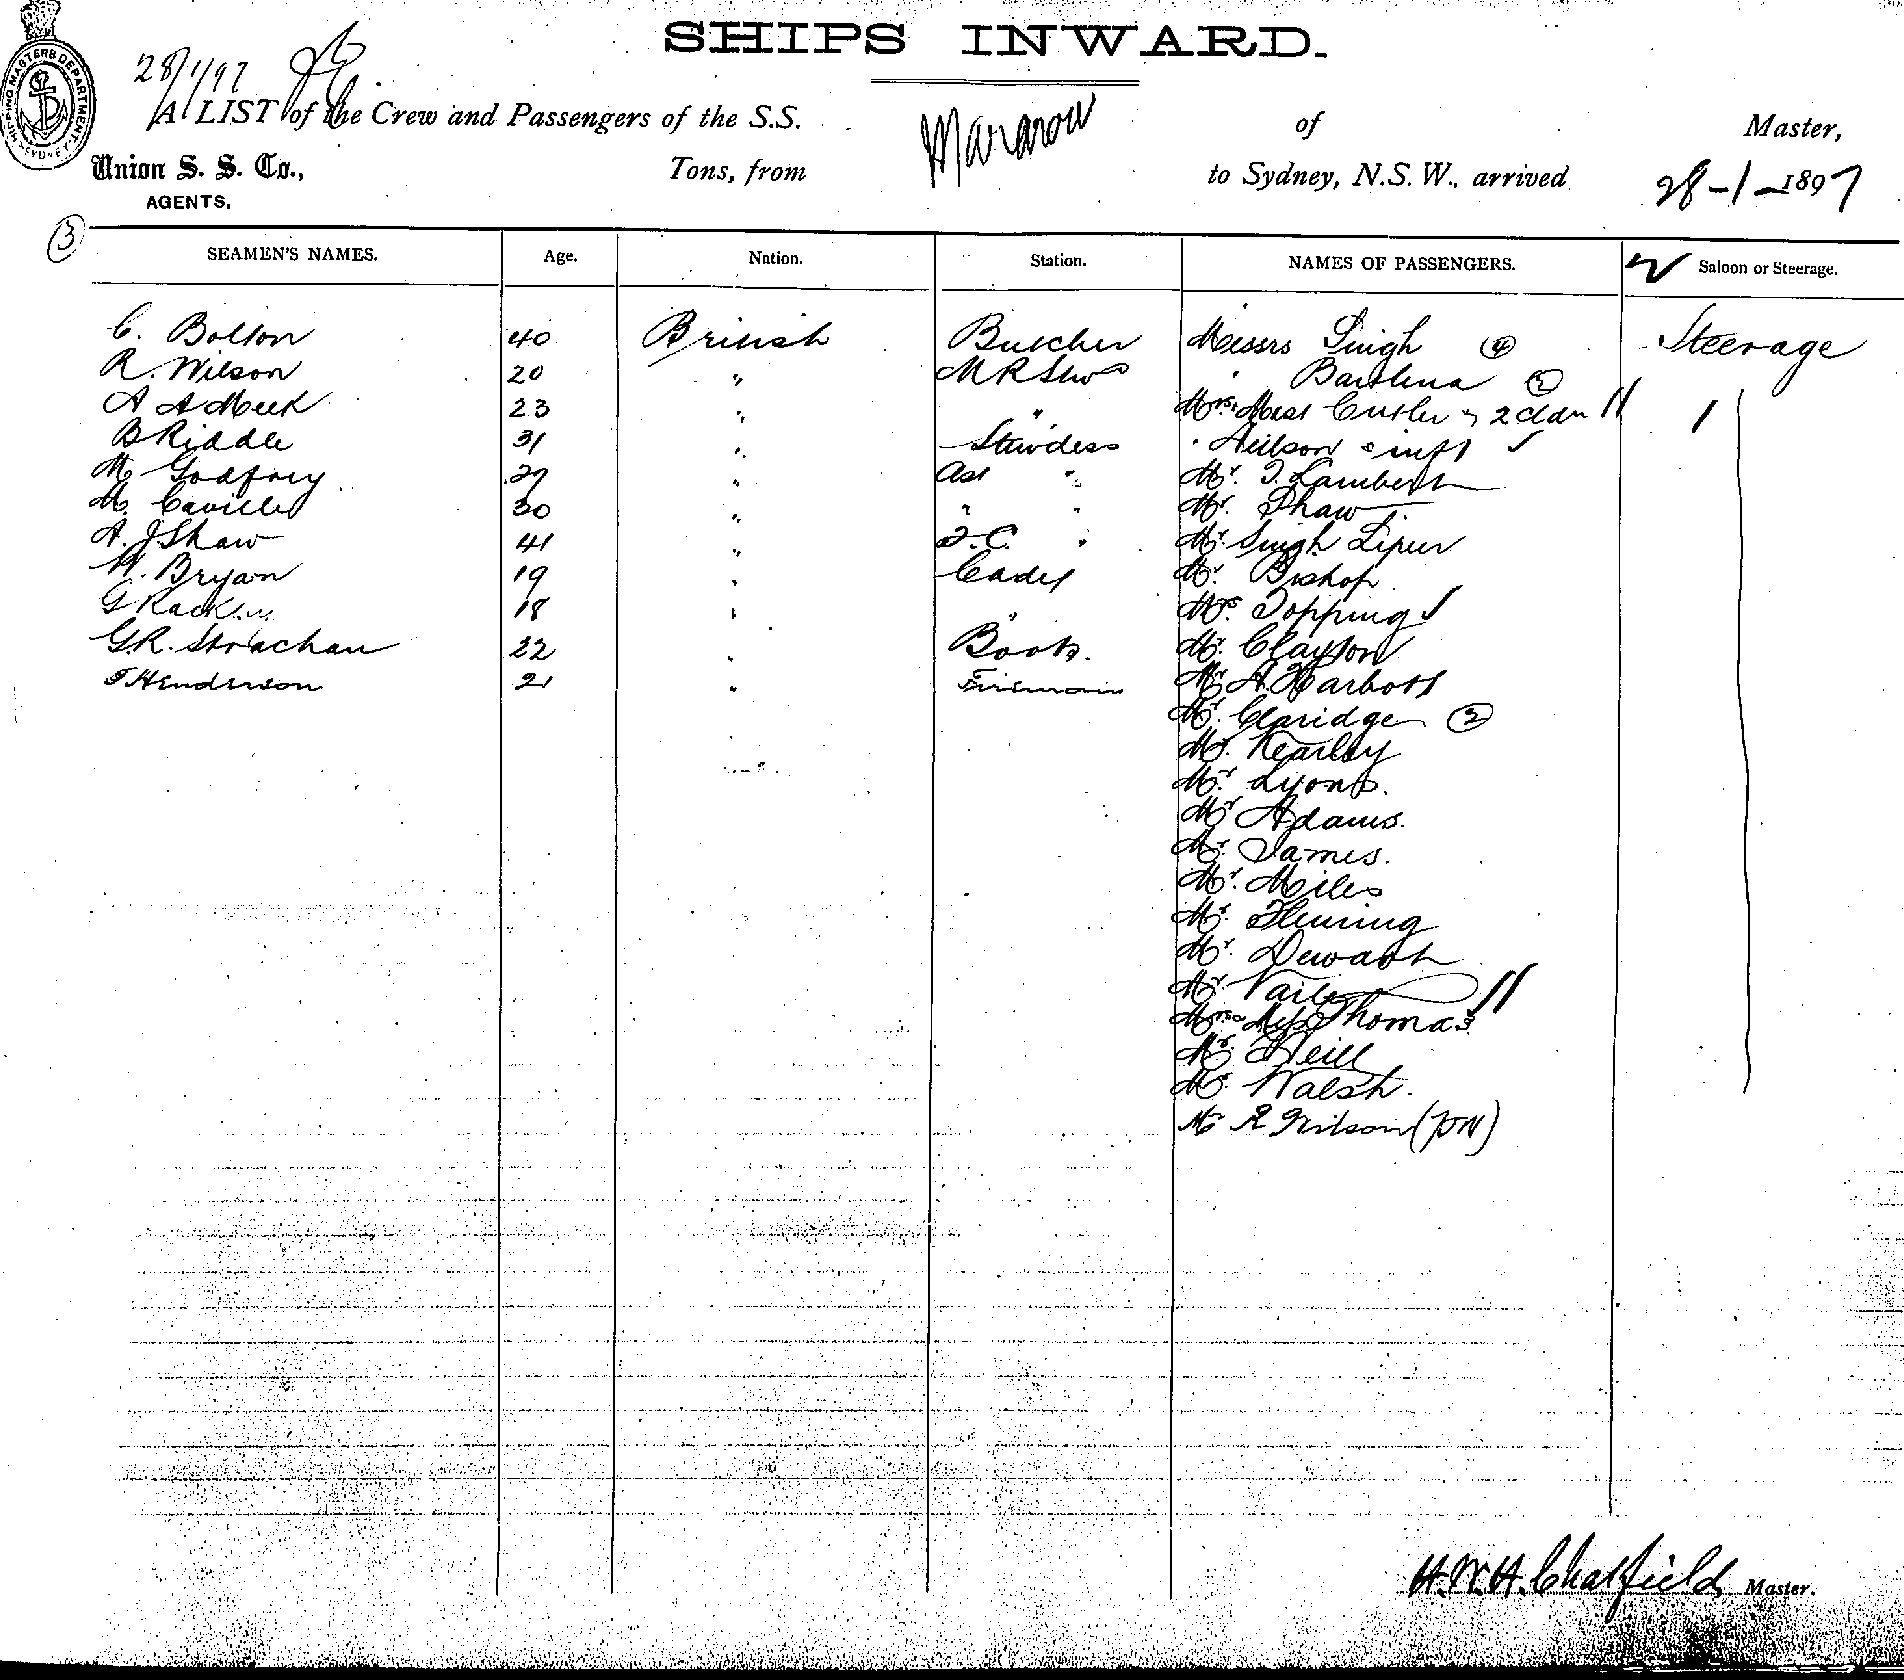 SHIPS INWARD.
SHIPPING MASTERS DEPARTMENT SYDNEY
28/1/97
A LIST of the Crew and Passengers of the S.S. of Master,
Union S. S. Co., Tons, from to Sydney, N.S.W., arrived 28-1-1897
AGENTS.
3
SEAMEN'S NAMES. Age. Nation. Station. NAMES OF PASSENGERS. Saloon or Steerage.
C. Bolton 40 British Butcher Messrs Singh (4) Steerage
R. Wilson 20 " "
A A Meek 23 " " Mrs Cutler 2 cldn
B Riddle 31 " Stewdess Neilson & inft
M Godfrey 29 " Ast " Mr. Lambert
M. 30 " " " Mr. Shaw
A. J Shaw 41 " " Mr. Singh
W. Bryan 19 " Cadet Mr. Bishop
G 18 " " Mrs Topping
G.R. Strachan 22 " Boots. Mr. Clayton
T Henderson 21 " Fireman A. Harbott
Mr. Claridge
Mr. Kearley
Mr. Lyons.
Mr Adams.
Mr. James.
Mr. Miles
Mr. Fleming
Mr.
Mr
Thomas
Mr. Neill
Mr. Walsh.
Mr R
H.W.H. Chatfield Master.